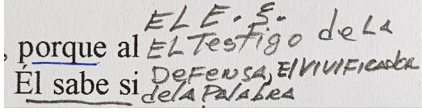 EL E. S.
, porque al EL TesTigo de LA
Él sabe si DeFensa, El VIVIFicador
de la PALABRA